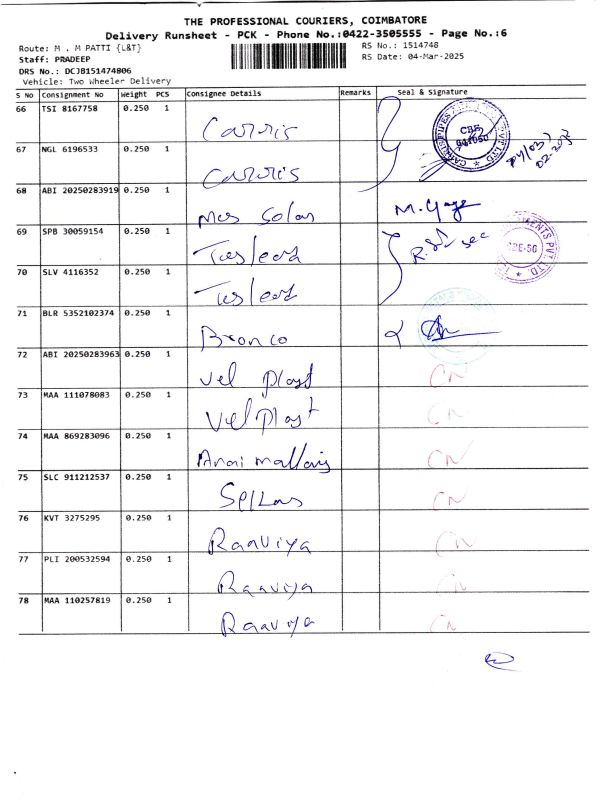 THE PROFESSIONAL COURIERS, COIMBATORE
Delivery Runsheet - PCK - Phone No.:0422-3505555 - Page No.:6
Route: M . M PATTI {L&T}
RS No.: 1514748
Staff: PRADEEP
RS Date: 04-Mar-2025
DRS No.: DCJB151474806
Vehicle: Two Wheeler Delivery
S NO Consignment No Weight PCS Consignee Details Remarks Seal & Signature
66 TSI 8167758 0.250 1
67 NGL 6196533 0.250 1
68 ABI 20250283919 0.250 1 M.
69 SPB 30059154 0.250 1
70 SLV 4116352 0.250 1
71 BLR 5352102374 0.250 1 Bronco
72 ABI 20250283963 0.250 1 Vel Plast CN
73 MAA 111078083 0.250 1 Vel Plast CN
74 MAA 869283096 0.250 1 CN
75 SLC 911212537 0.250 1 CN
76 KVT 3275295 0.250 1 Raaviya CN
77 PLI 200532594 0.250 1 Raaviya CN
78 MAA 110257819 0.250 1 Raaviya CN